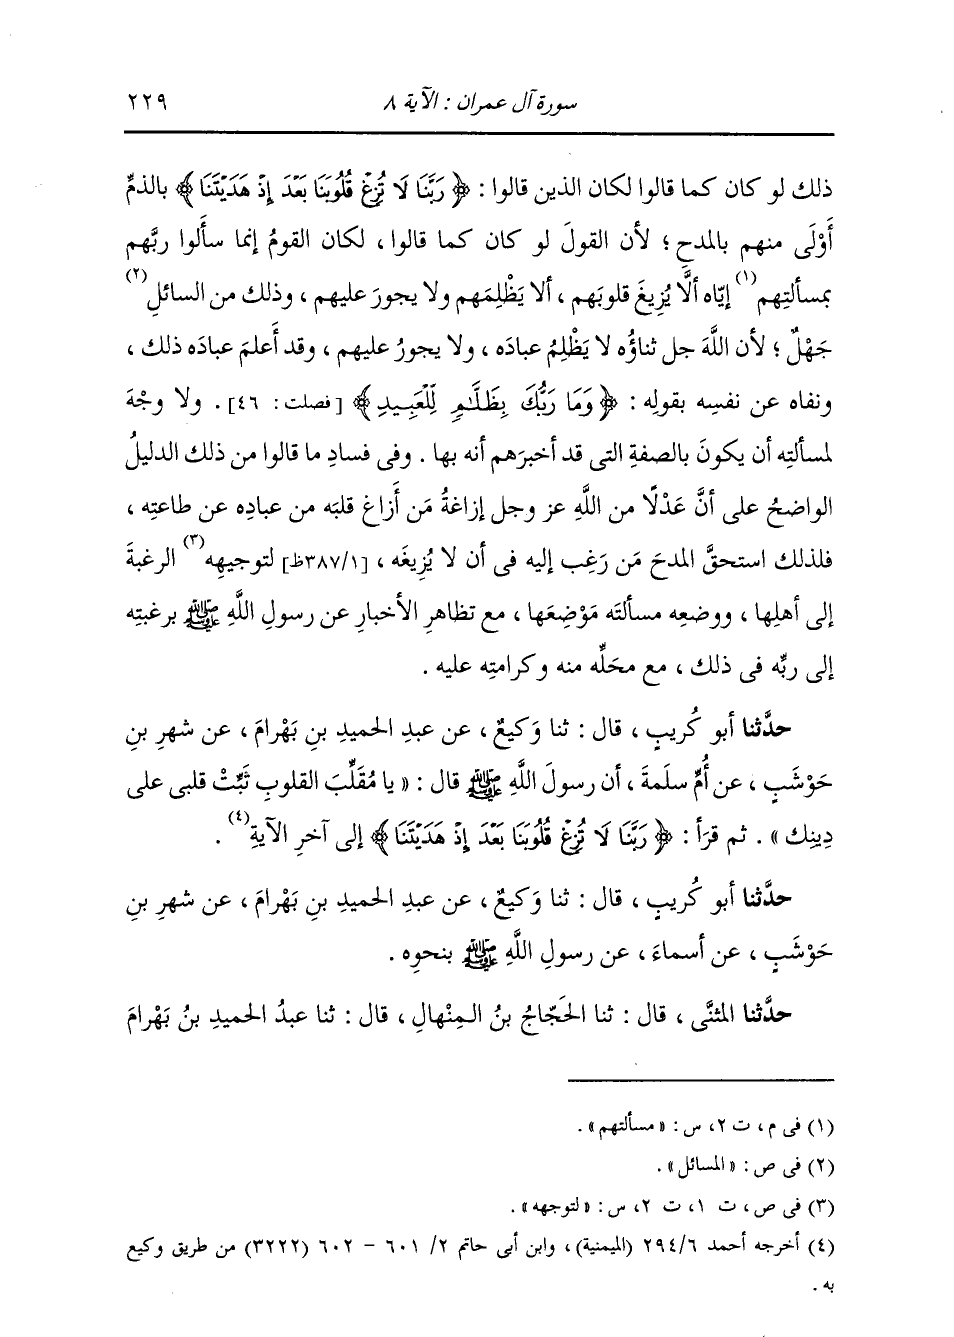 سورة آل عمران : الآية ٨ ٢٢٩
ذلك لو كان كما قالوا لكان الذين قالوا : ﴿ رَبَّنَا لَا تُزِغْ قُلُوبَنَا بَعْدَ إِذْ هَدَيْتَنَا ﴾ بالذمِّ
أَوْلَى منهم بالمدحِ ؛ لأن القولَ لو كان كما قالوا ، لكان القومُ إنما سأَلوا ربَّهم
بمسألتِهم(١) إيّاه ألَّا يُزِيغَ قلوبَهم ، ألا يَظْلِمَهم ولا يجورَ عليهم ، وذلك من السائلِ(٢)
جَهْلٌ ؛ لأن اللَّهَ جل ثناؤُه لا يَظْلِمُ عبادَه ، ولا يجورُ عليهم ، وقد أَعلمَ عبادَه ذلك ،
ونفاه عن نفسِه بقولِه : ﴿ وَمَا رَبُّكَ بِظَلَّامٍ لِّلْعَبِيدِ ﴾ [فصلت : ٤٦] . ولا وجْهَ
لمسألتِه أن يكونَ بالصفةِ التى قد أخبرَهم أنه بها . وفى فسادِ ما قالوا من ذلك الدليلُ
الواضحُ على أنَّ عَدْلًا من اللَّهِ عز وجل إزاغةُ مَن أَزاغ قلبَه من عبادِه عن طاعتِه ،
فلذلك استحقَّ المدحَ مَن رَغِب إليه فى أن لا يُزِيغَه ، [٣٨٧/١ظ] لتوجيهِه(٣) الرغبةَ
إلى أهلِها ، ووضعِه مسألتَه مَوْضِعَها ، مع تظاهرِ الأخبارِ عن رسولِ اللَّهِ ﷺ برغبتِه
إلى ربِّه فى ذلك ، مع محلِّه منه وكرامتِه عليه .
حدَّثنا أبو كُريبٍ ، قال : ثنا وَكيعٌ ، عن عبدِ الحميدِ بنِ بَهْرامَ ، عن شهرِ بنِ
حَوْشَبٍ ، عن أُمِّ سلَمةَ ، أن رسولَ اللَّهِ ﷺ قال : « يا مُقَلِّبَ القلوبِ ثَبِّتْ قلبى على
دِينِك » . ثم قرَأ : ﴿ رَبَّنَا لَا تُزِغْ قُلُوبَنَا بَعْدَ إِذْ هَدَيْتَنَا ﴾ إلى آخرِ الآيةِ(٤) .
حدَّثنا أبو كُريبٍ ، قال : ثنا وَكيعٌ ، عن عبدِ الحميدِ بنِ بَهْرامَ ، عن شهرِ بنِ
حَوْشَبٍ ، عن أسماءَ ، عن رسولِ اللَّهِ ﷺ بنحوِه .
حدَّثنا المثنَّى ، قال : ثنا الحَجّاجُ بنُ المِنْهالِ ، قال : ثنا عبدُ الحميدِ بنُ بَهْرامَ
(١) فى م، ت ٢، س : « مسألتهم » .
(٢) فى ص : « المسائل » .
(٣) فى ص، ت ١، ت ٢، س : « لتوجهه » .
(٤) أخرجه أحمد ٢٩٤/٦ (الميمنية)، وابن أبى حاتم ٢/ ٦٠١ - ٦٠٢ (٣٢٢٢) من طريق وكيع
به .